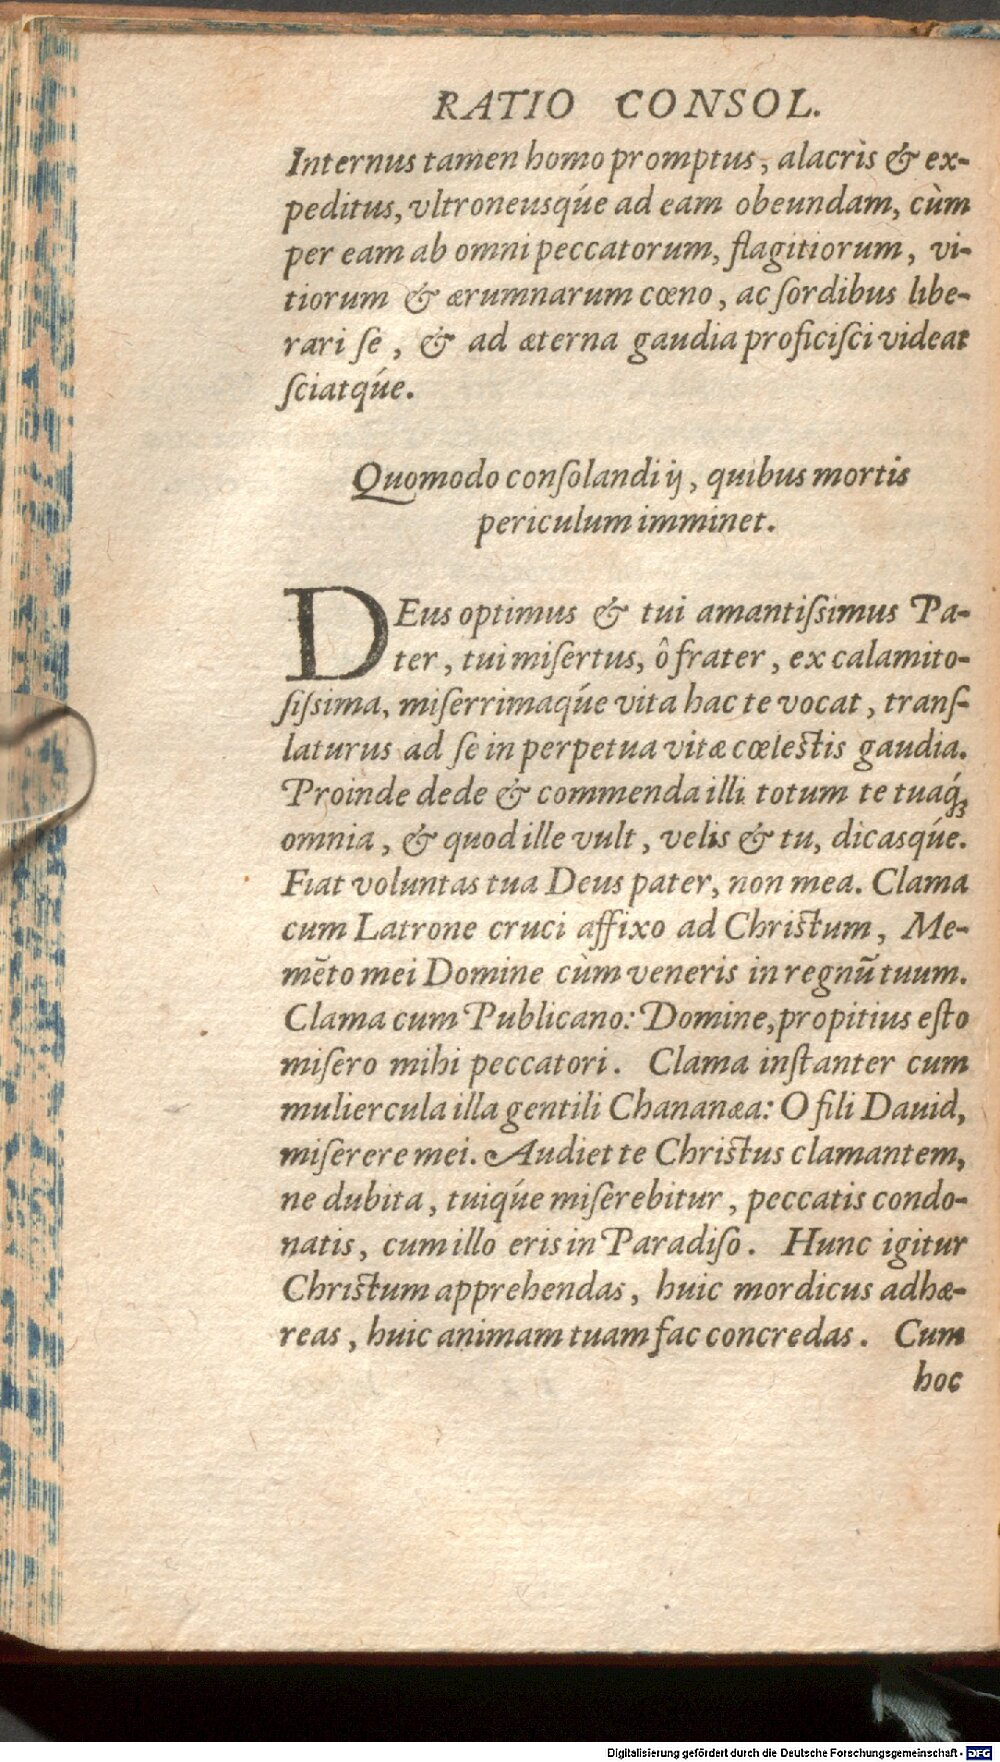 RATIO CONSOL.
Internus tamen homo promptus, alacris & ex-
peditus, vltroneusq́ue ad eam obeundam, cùm
per eam ab omni peccatorum, flagitiorum, vi-
tiorum & ærumnarum cœno, ac ſordibus libe-
rari ſe, & ad æterna gaudia proficiſci videat
ſciatq́ue.
Quomodo conſolandi ij, quibus mortis
periculum imminet.
DEus optimus & tui amantiſsimus Pa-
ter, tui miſertus, ô frater, ex calamito-
ſiſsima, miſerrimaq́ue vita hac te vocat, tranſ-
laturus ad ſe in perpetua vitæ cœleſtis gaudia.
Proinde dede & commenda illi totum te tuaq́ꝫ
omnia, & quod ille vult, velis & tu, dicasq́ue.
Fiat voluntas tua Deus pater, non mea. Clama
cum Latrone cruci affixo ad Chriſtum, Me-
mēto mei Domine cùm veneris in regnū tuum.
Clama cum Publicano: Domine, propitius eſto
miſero mihi peccatori. Clama inſtanter cum
muliercula illa gentili Chananæa: O fili Dauid,
miſerere mei. Audiet te Chriſtus clamantem,
ne dubita, tuiq́ue miſerebitur, peccatis condo-
natis, cum illo eris in Paradiſo. Hunc igitur
Chriſtum apprehendas, huic mordicus adhæ-
reas, huic animam tuam fac concredas. Cum
hoc
Digitalisierung gefördert durch die Deutsche Forschungsgemeinschaft - DFG